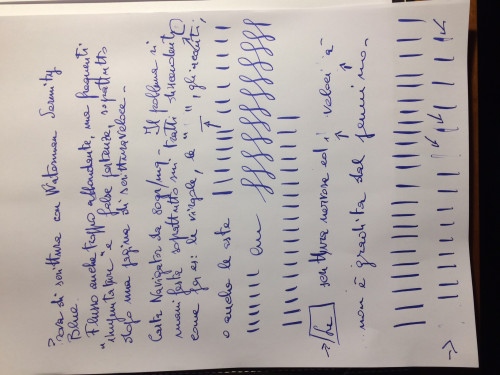 Prova di scrittura con Waterman Serenity
Blue.
Flusso anche troppo abbondente, ma frequenti
"impuntature" e false partenze, soprattutto
dopo una pagina di scrittura veloce -
Carta Navigator da 80gr/mq. - Il problema si
manifesta soprattutto sui tratti discendenti,
come per es: le virgole, le " ", gli accenti,
o anche le aste
La scrittura nervosa ed i veloci a-
non è gradita dal pennino-